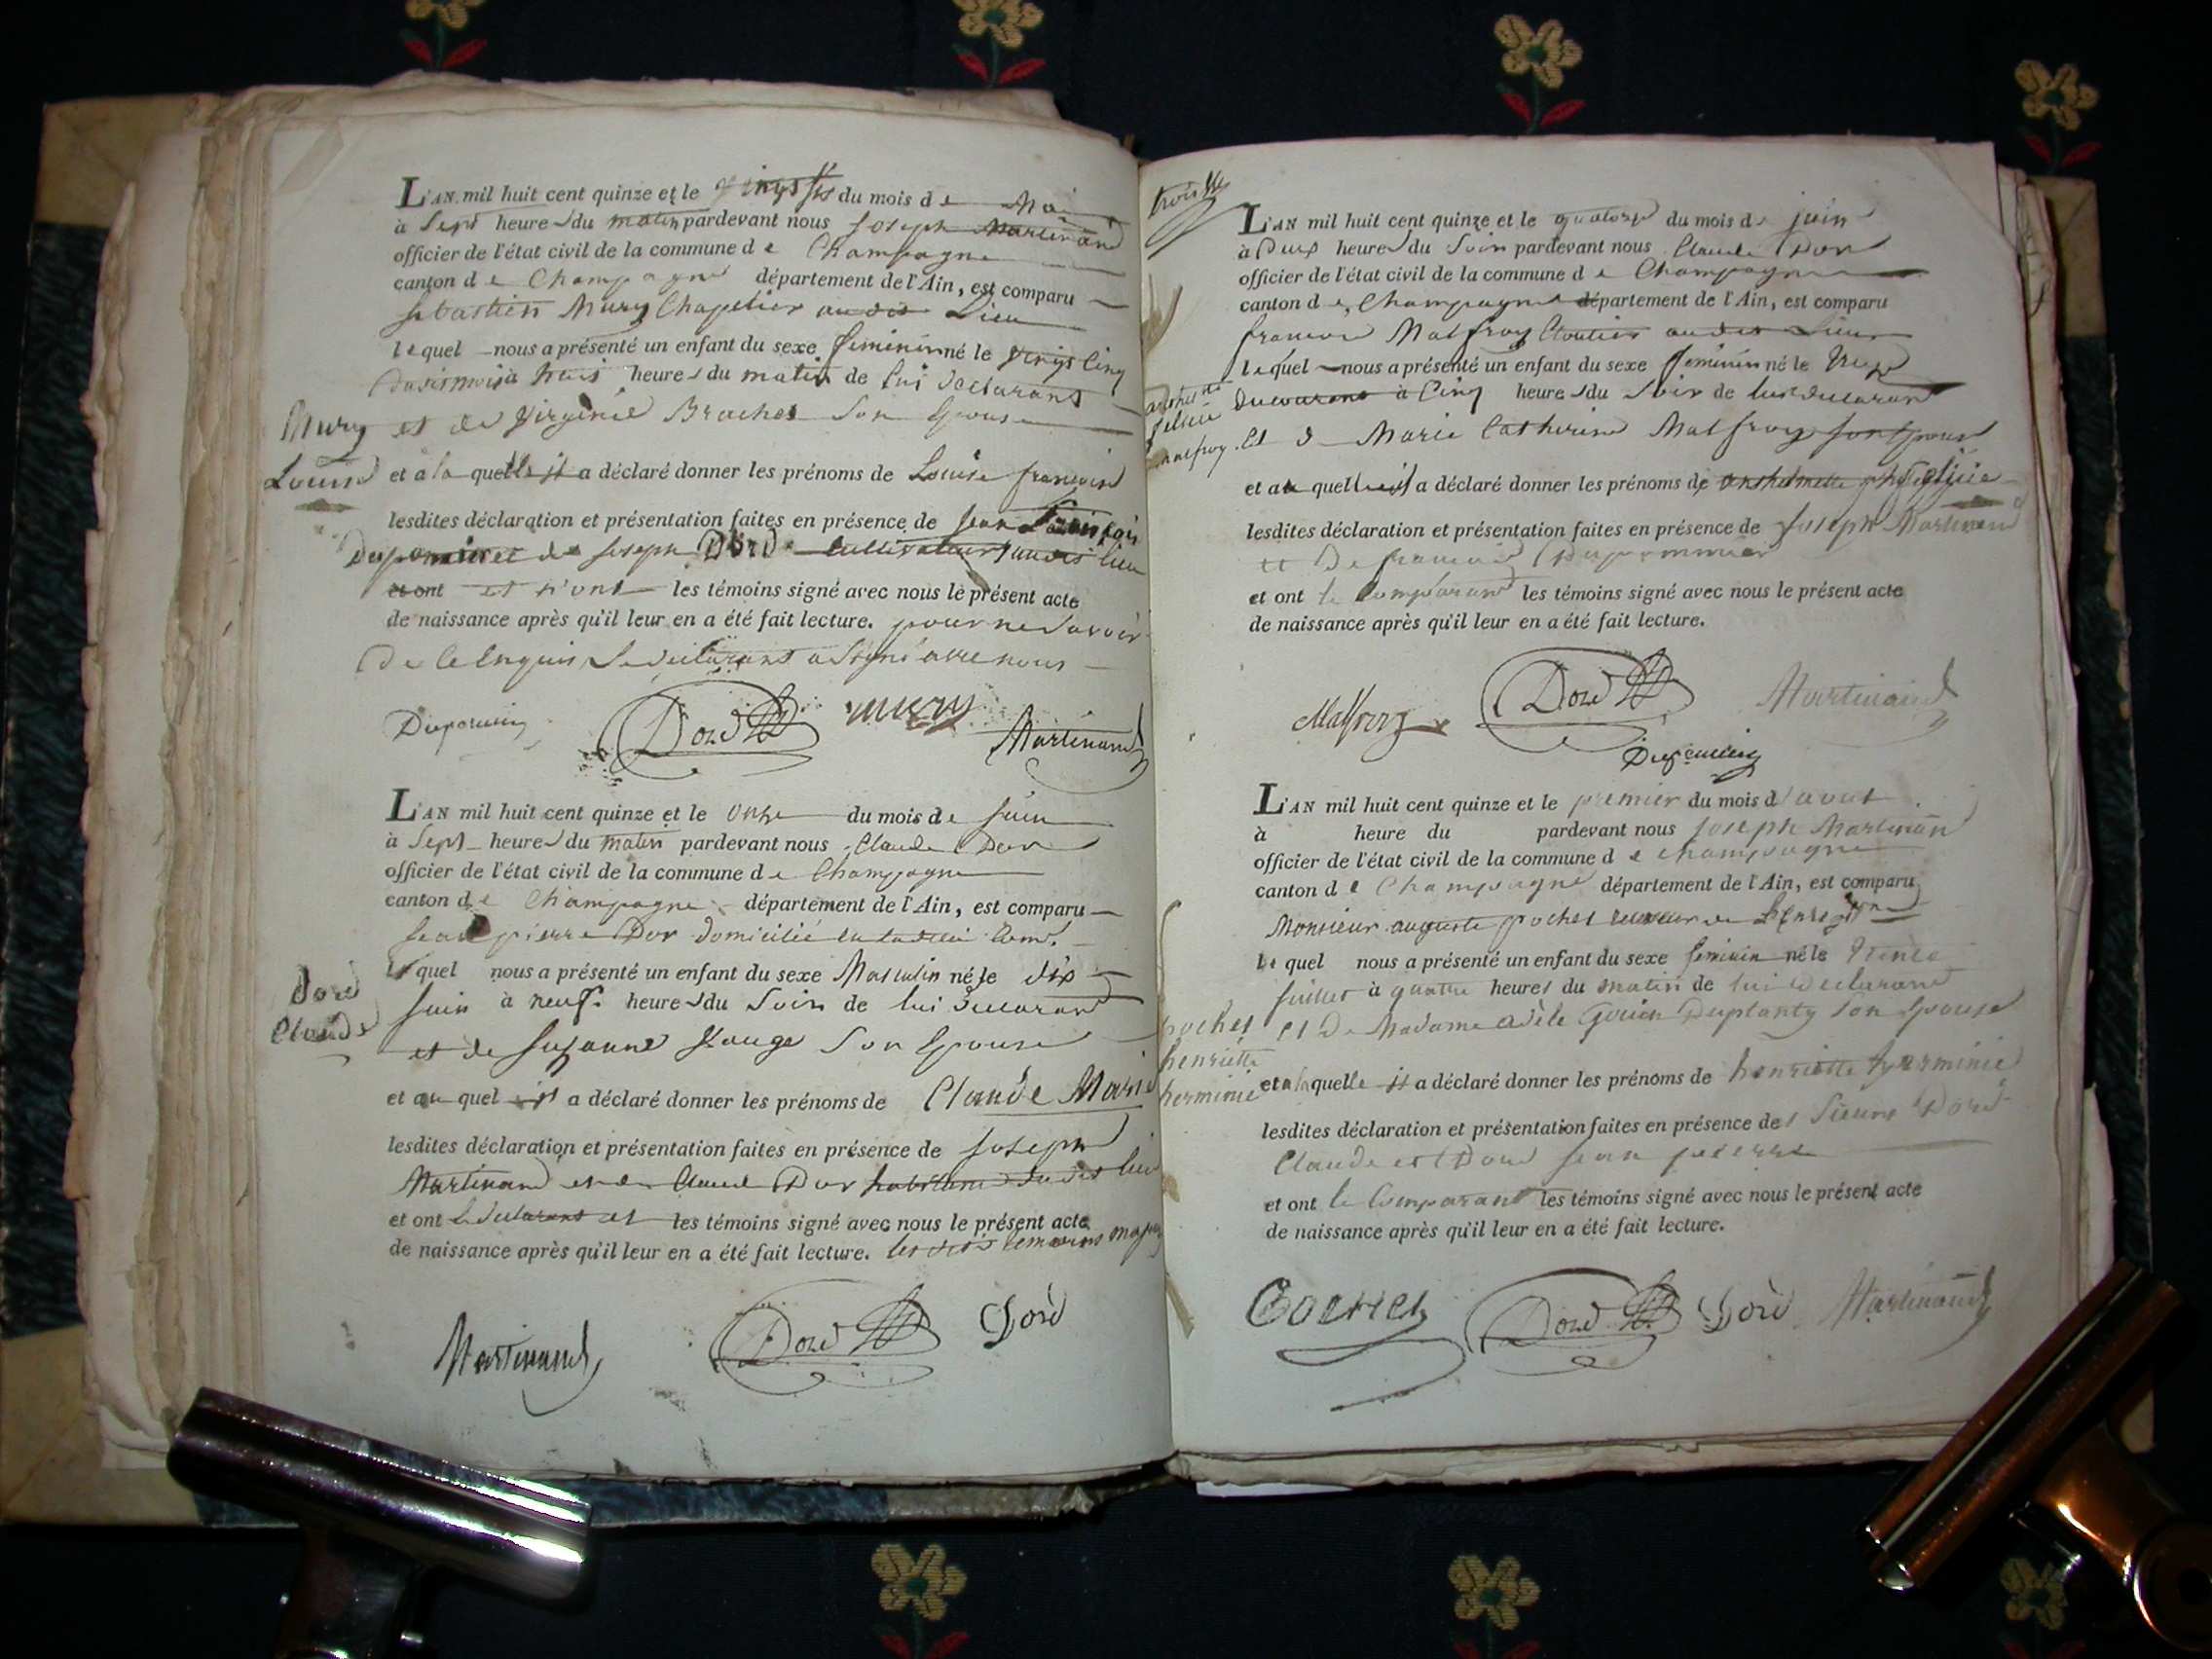 L'AN mil huit cent quinze et le vingt six du mois de Mai
à Sept heures du matin pardevant nous Joseph Martinand
officier de l'état civil de la commune de Champagne
canton de Champagne département de l'Ain, est comparu
sebastien Mury Chapelier au dit Lieu
lequel nous a présenté un enfant du sexe feminin né le vingt Cinq
à trois heures du matin de lui declarant
Mury et de virginie Brachet Son Epouse
Louise et a la quelle il a déclaré donner les prénoms de Louise françoise
lesdites déclaration et présentation faites en présence de jean
et de joseph Dord Cultivateurs au dit lieu
et ont et n'ont les témoins signé avec nous le présent acte
de naissance après qu'il leur en a été fait lecture. pour ne Savoir
De Ce Enquis, Le declarant a Signé avec nous
Dupommier Dord mury Martinand
L'AN mil huit cent quinze et le Onze du mois de juin
à Sept heures du matin pardevant nous Claude Dor
officier de l'état civil de la commune de Champagne
canton de Champagne département de l'Ain, est comparu
jean pierre Dor domicilié en la
lequel nous a présenté un enfant du sexe Masculin né le dix
Dord
juin à neuf heures du Soir de lui declarant
Claude
et de Suzanne Son Epouse
et au quel il a déclaré donner les prénoms de Claude Marie
lesdites déclaration et présentation faites en présence de joseph
Martinand et de Claude Dor habitans du dit lieu
et ont le declarant et les témoins signé avec nous le présent acte
de naissance après qu'il leur en a été fait lecture. les dits temoins majeurs
Martinand Dord Dord
L'AN mil huit cent quinze et le quatorze du mois de juin
à Deux heures du Soir pardevant nous Claude Dor
officier de l'état civil de la commune de Champagne
canton de Champagne département de l'Ain, est comparu
françois Malfroy Cloutier au dit Lieu
lequel nous a présenté un enfant du sexe feminin né le treize
du courant à Cinq heures du Soir de lui declarant
felicie
malfroy
Et de Marie Catherine Malfroy son Epouse
et a la quelle il a déclaré donner les prénoms de
lesdites déclaration et présentation faites en présence de joseph Martinand
et De françois Dupommier
et ont le Comparant les témoins signé avec nous le présent acte
de naissance après qu'il leur en a été fait lecture.
Malfroy Dord Martinand
Dupommier
L'AN mil huit cent quinze et le premier du mois d'aout
à heure du pardevant nous Joseph Martinand
officier de l'état civil de la commune de Champagne
canton de Champagne département de l'Ain, est comparu
Monsieur auguste pochet receveur de
lequel nous a présenté un enfant du sexe feminin né le trente
juillet à quatre heures du matin de lui declarant
pochet et De Madame adèle Duplanty son Epouse
henriette
herminie
et a la quelle il a déclaré donner les prénoms de henriette herminie
lesdites déclaration et présentation faites en présence des Sieurs Dord
Claude et Dord jean pierre
et ont le Comparant les témoins signé avec nous le présent acte
de naissance après qu'il leur en a été fait lecture.
Dord Dord Martinand